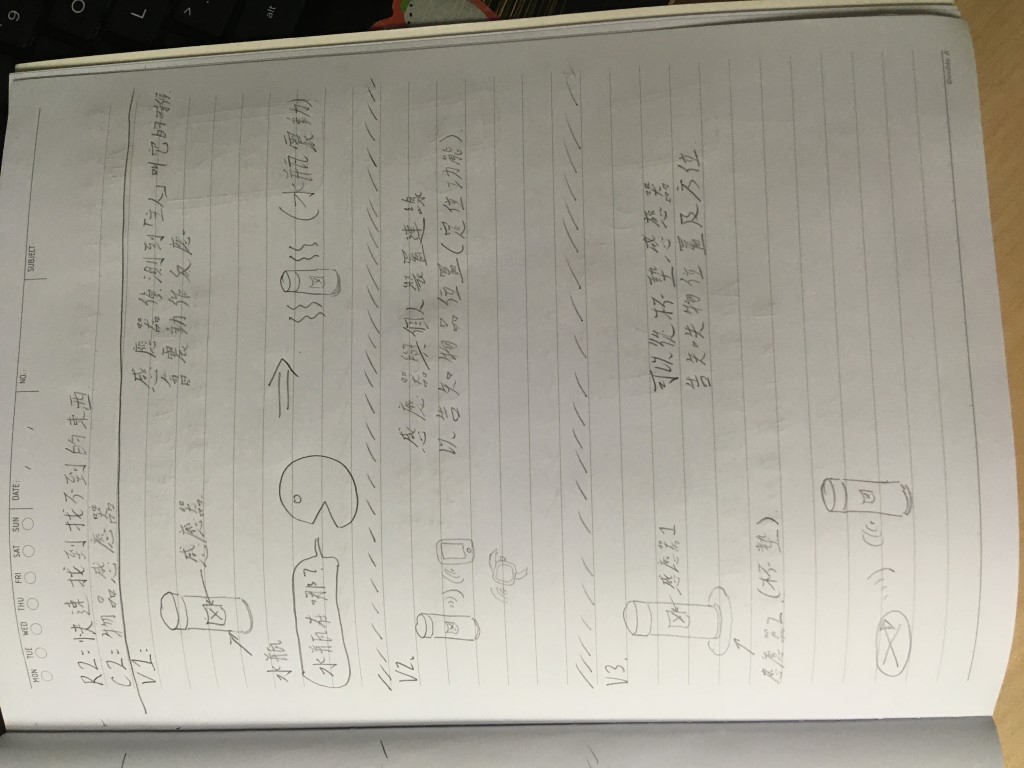 MON TUE WED THU FRI SAT SUN
DATE: / /
NO.:
SUBJECT:
R2:快速找到找不到的東西
C2:物品感應器
V1:
感應器偵測到「主人」叫它的時候
會震動作反應.
感應器
水瓶
水瓶在哪?
(水瓶震動)
V2.
感應器與個人裝置連線
以告知物品位置(定位功能).
V3.
感應器1
可以從杯墊感應器
告知失物位置及方位.
感應器2(杯墊)
Double A
9
O
L
alt